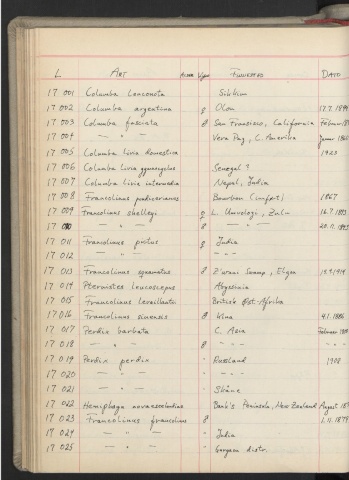 L ART ALDER Kjønn FUNNSTED DATO
17 001 Columba leuconota Sikkim
17 002 Columba argentina 8 Olon 17.7.1899
17 003 Columba fasciata 8 San Francisco, California Februar
17 004 — " — Vera Paz, C. Amerika Januar
17 005 Columba livia domestica 1923
17 006 Columba livia gymnocyclus Senegal ?
17 007 Columba livia intermedia Nepal, India
17 008 Francolinus pondicerianus Bourbon (innført) 1867
17 009 Francolinus shelleyi ♀ L. Umvolozi, Zulu 16.7.1893
17 010 — " — 8 — " — 20.11.1893
17 011 Francolinus pictus 8 India
17 012 — " — — " —
17 013 Francolinus squamatus 8 Elgon 1914
17 014 Pternistes leucoscepus Abyssinia
17 015 Francolinus levaillantii British Øst Afrika
17 016 Francolinus sinensis 8 Kina 4.1.1886
17 017 Perdix barbata " C. Asia Februar
17 018 — " — 8 — " —
17 019 Perdix perdix " Russland 1908
17 020 — " — " — " —
17 021 — " — " Skåne
17 022 Hemiphaga novaeseelandiae Bank's Peninsula, New Zealand August
17 023 Francolinus francolinus 8 1.11.187
17 024 — " — " India
17 025 — " — " Gorgaon distr.